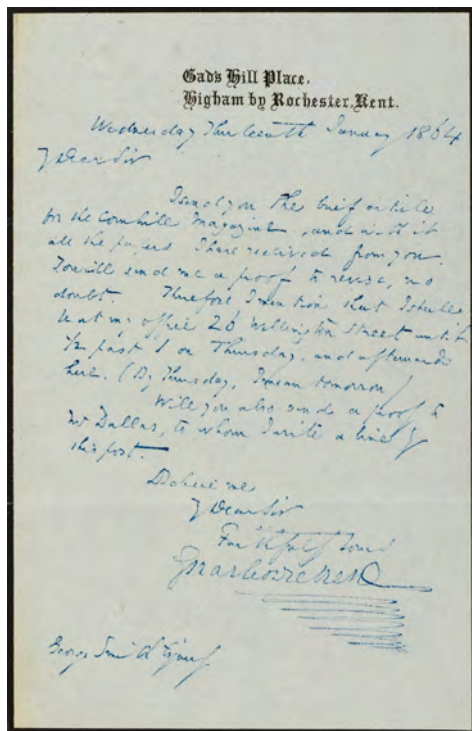 Gad's Hill Place,
Higham by Rochester, Kent.
Wednesday Thirteenth January 1864
My Dear Sir
I send you the brief article
for the Cornhill Magazine, and with it
all the papers I have received from you.
You will send me a proof to revise, no
doubt. Therefore I mention that I shall
be at my office 26 Wellington Street until
½ past 1 on Thursday, and afterwards
here. (By Thursday, I mean tomorrow)
Will you also send a proof to
Mr Dallas, to whom I write a line by
this post.
Believe me
My Dear Sir
Faithfully Yours
Charles Dickens
George Smith Esquire